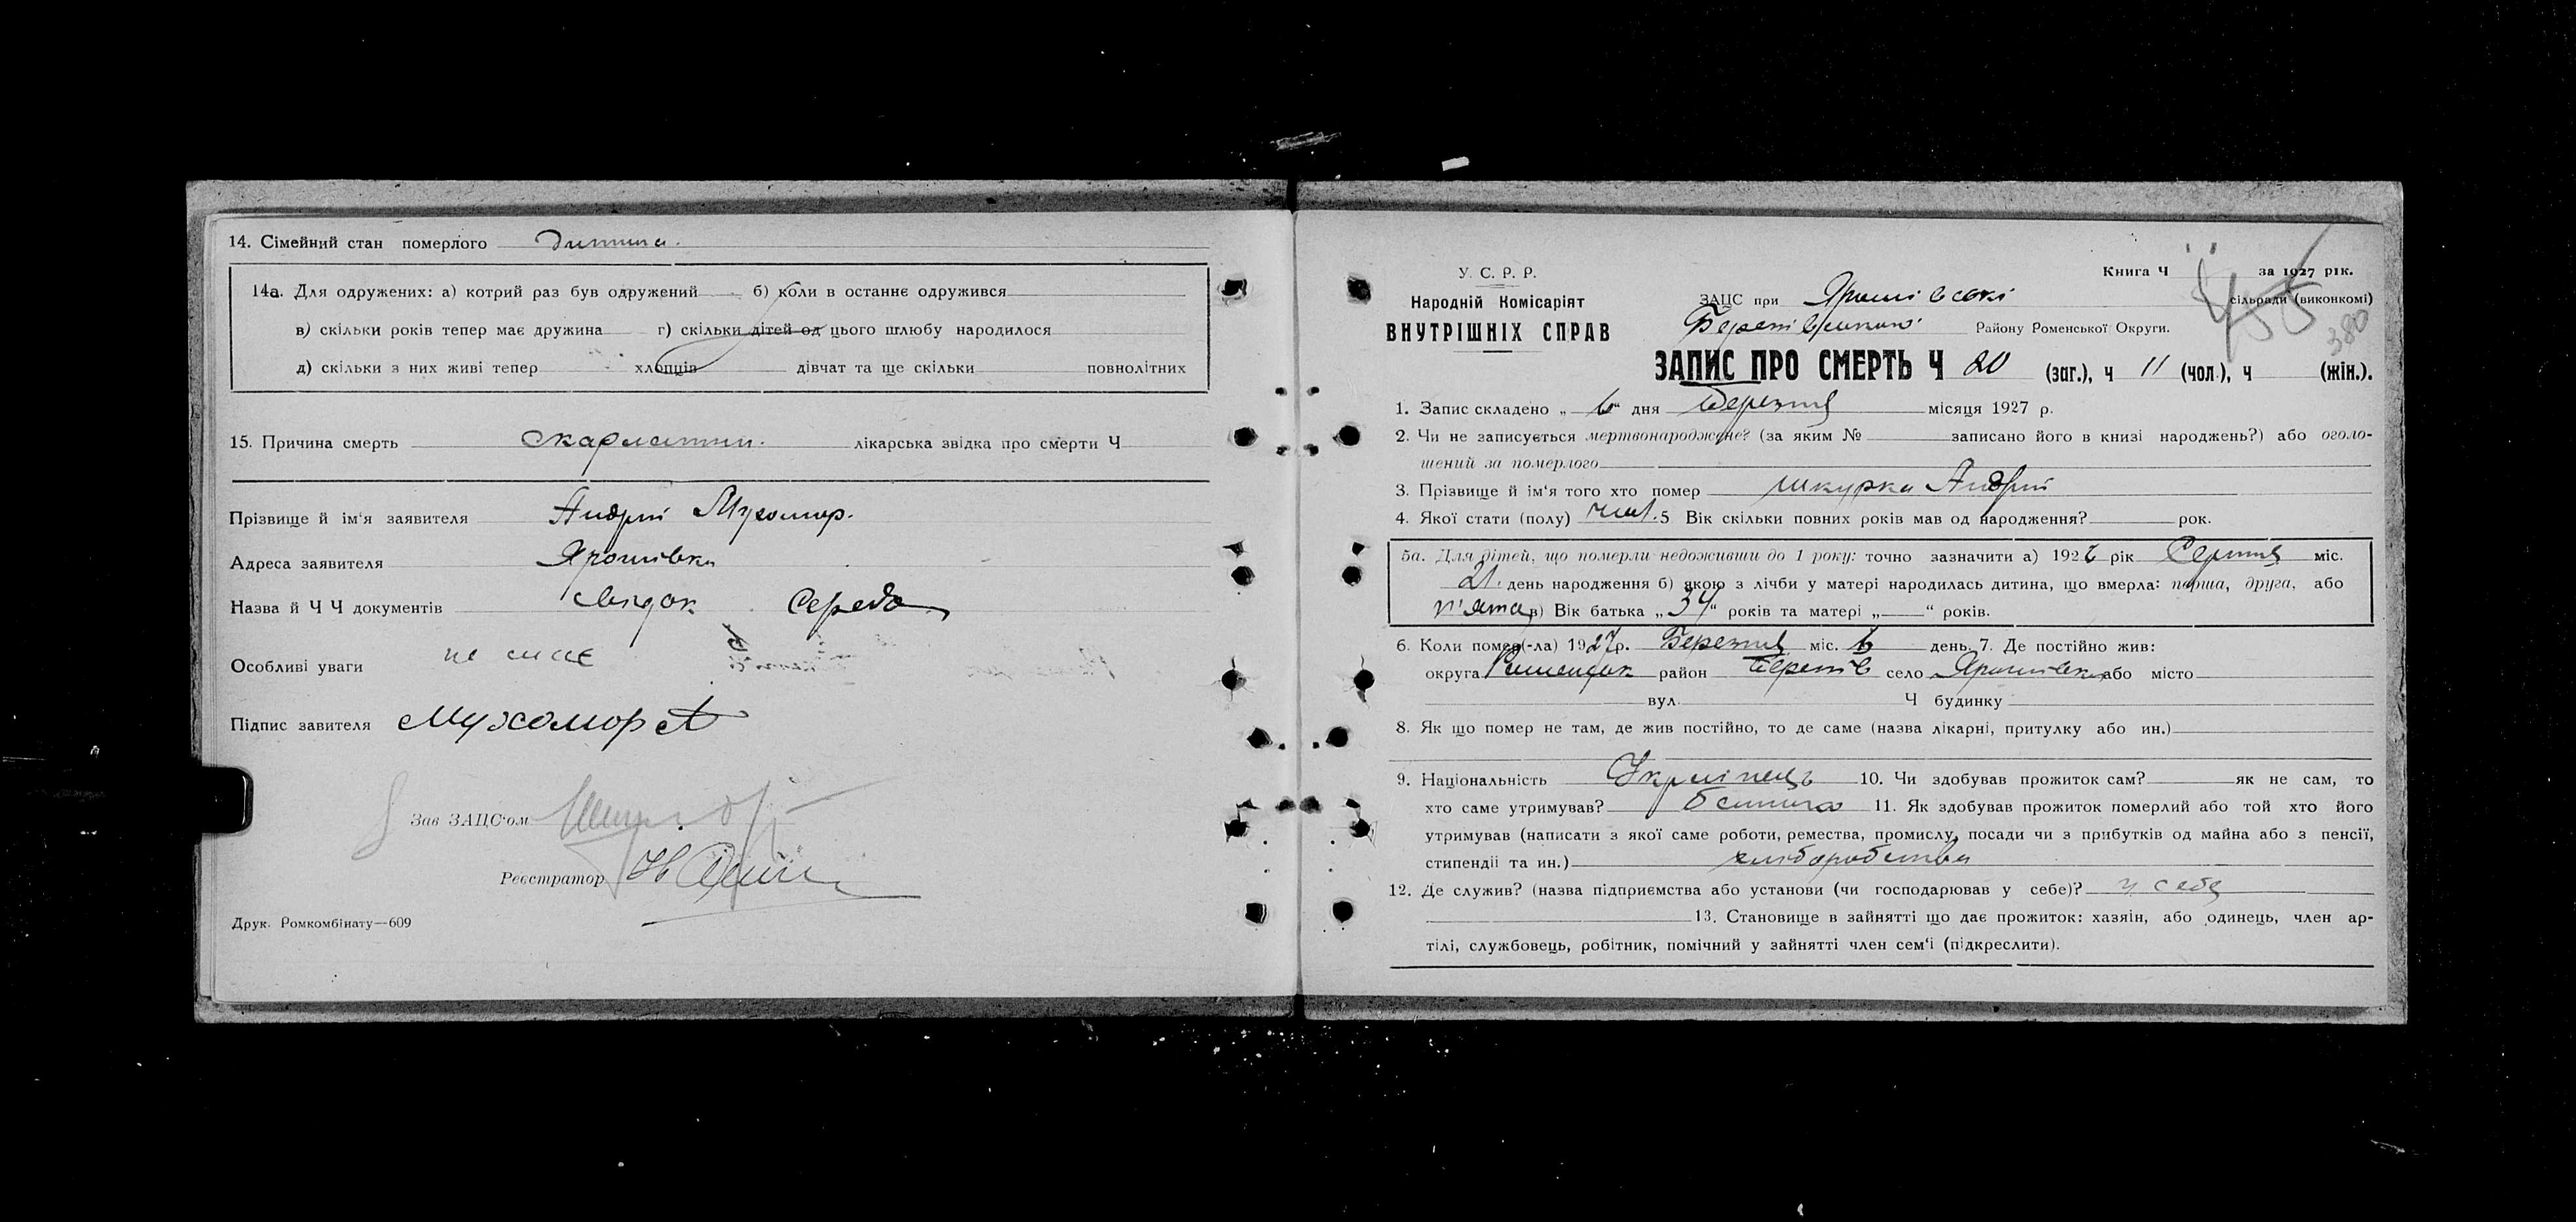 14. Сімейний стан померлого Дитина.
14а. Для одружених: а) котрий раз був одружений б) коли в останнє одружився
в) скільки років тепер має дружина г) скільки дітей од цього шлюбу народилося
д) скільки з них живі тепер хлопців дівчат та ще скільки повнолітних
15. Причина смерть скарлатин. лікарська звідка про смерти Ч
Прізвище й ім'я заявителя Андрій Мухомор.
Адреса заявителя Ярошівка
Назва й Ч Ч документів Середа
Особливі уваги не має
Підпис завителя Мухомор А
Зав ЗАЦС'ом
Реєстратор
Друк. Ромкомбінату—609
У. С. Р. Р.
Народній Комісаріят
ВНУТРІШНІХ СПРАВ
Книга Ч за 1927 рік.
ЗАЦС при Ярошівські сільради (виконкомі)
Району Роменської Округи.
380
ЗАПИС ПРО СМЕРТЬ Ч 20 (заг.), ч 11 (чол.), ч (жін.).
1. Запис складено „ 6 “ дня Березня місяця 1927 р.
2. Чи не записується мертвонароджене? (за яким № записано його в книзі народжень?) або оголо-
шений за померлого
3. Прізвище й ім'я того хто помер Шкурка Андрій
4. Якої стати (полу) чол. 5 Вік скільки повних років мав од народження? рок.
5а. Для дітей, що померли недоживши до 1 року: точно зазначити а) 1926 рік Серпня міс.
21. день народження б) якою з лічби у матері народилась дитина, що вмерла: перша, друга, або
п'ята в) Вік батька „ 34 “ років та матері „ “ років.
6. Коли помер(-ла) 1927р. Березня міс. 6 день. 7. Де постійно жив:
округа район Берешів село Ярошівка або місто
вул. Ч будинку
8. Як що помер не там, де жив постійно, то де саме (назва лікарні, притулку або ин.)
9. Національність Українець 10. Чи здобував прожиток сам? як не сам, то
хто саме утримував? батько 11. Як здобував прожиток померлий або той хто його
утримував (написати з якої саме роботи, ремества, промислу, посади чи з прибутків од майна або з пенсії,
стипендії та ин.) хліборобства
12. Де служив? (назва підприємства або установи (чи господарював у себе)? у себе
13. Становище в зайнятті що дає прожиток: хазяін, або одинець, член ар-
тілі, службовець, робітник, помічний у зайнятті член сем'і (підкреслити).